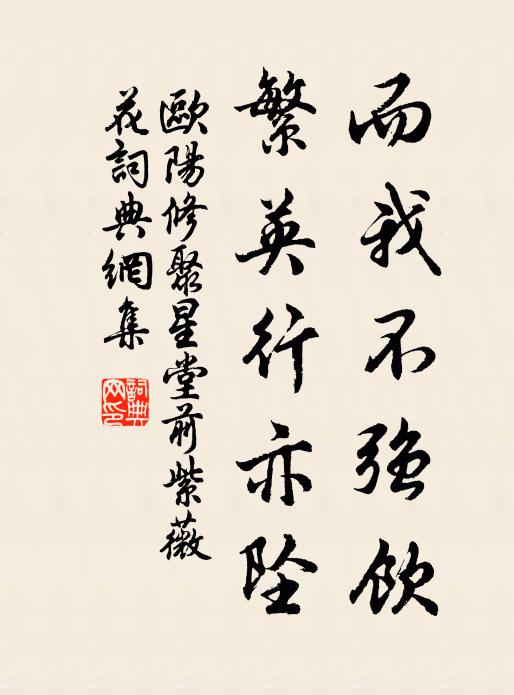 而我不強飲
繁英行亦墜
歐陽修聚星堂前紫薇
花詞典網集
詞典網印